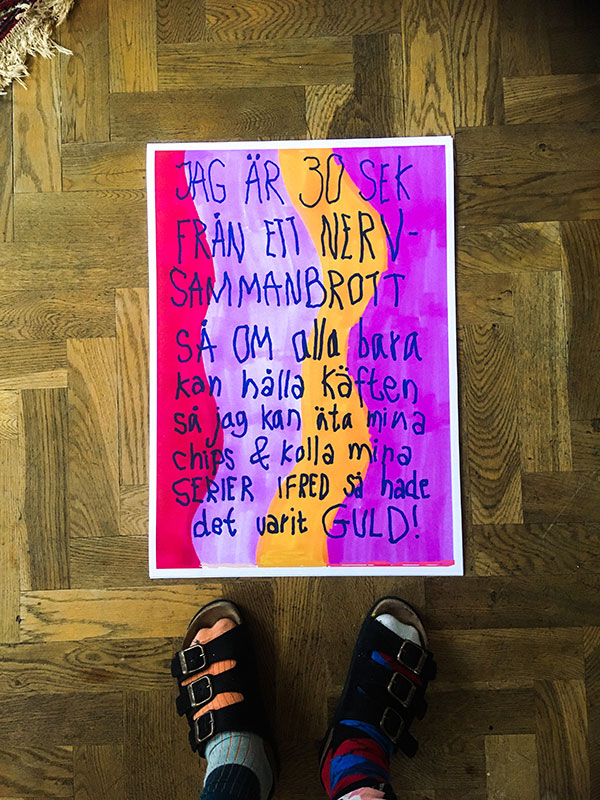 JAG ÄR 30 SEK
FRÅN ETT NERV-
SAMMANBROTT
SÅ OM alla bara
kan hålla käften
så jag kan äta mina
chips & kolla mina
SERIER IFRED så hade
det varit GULD!